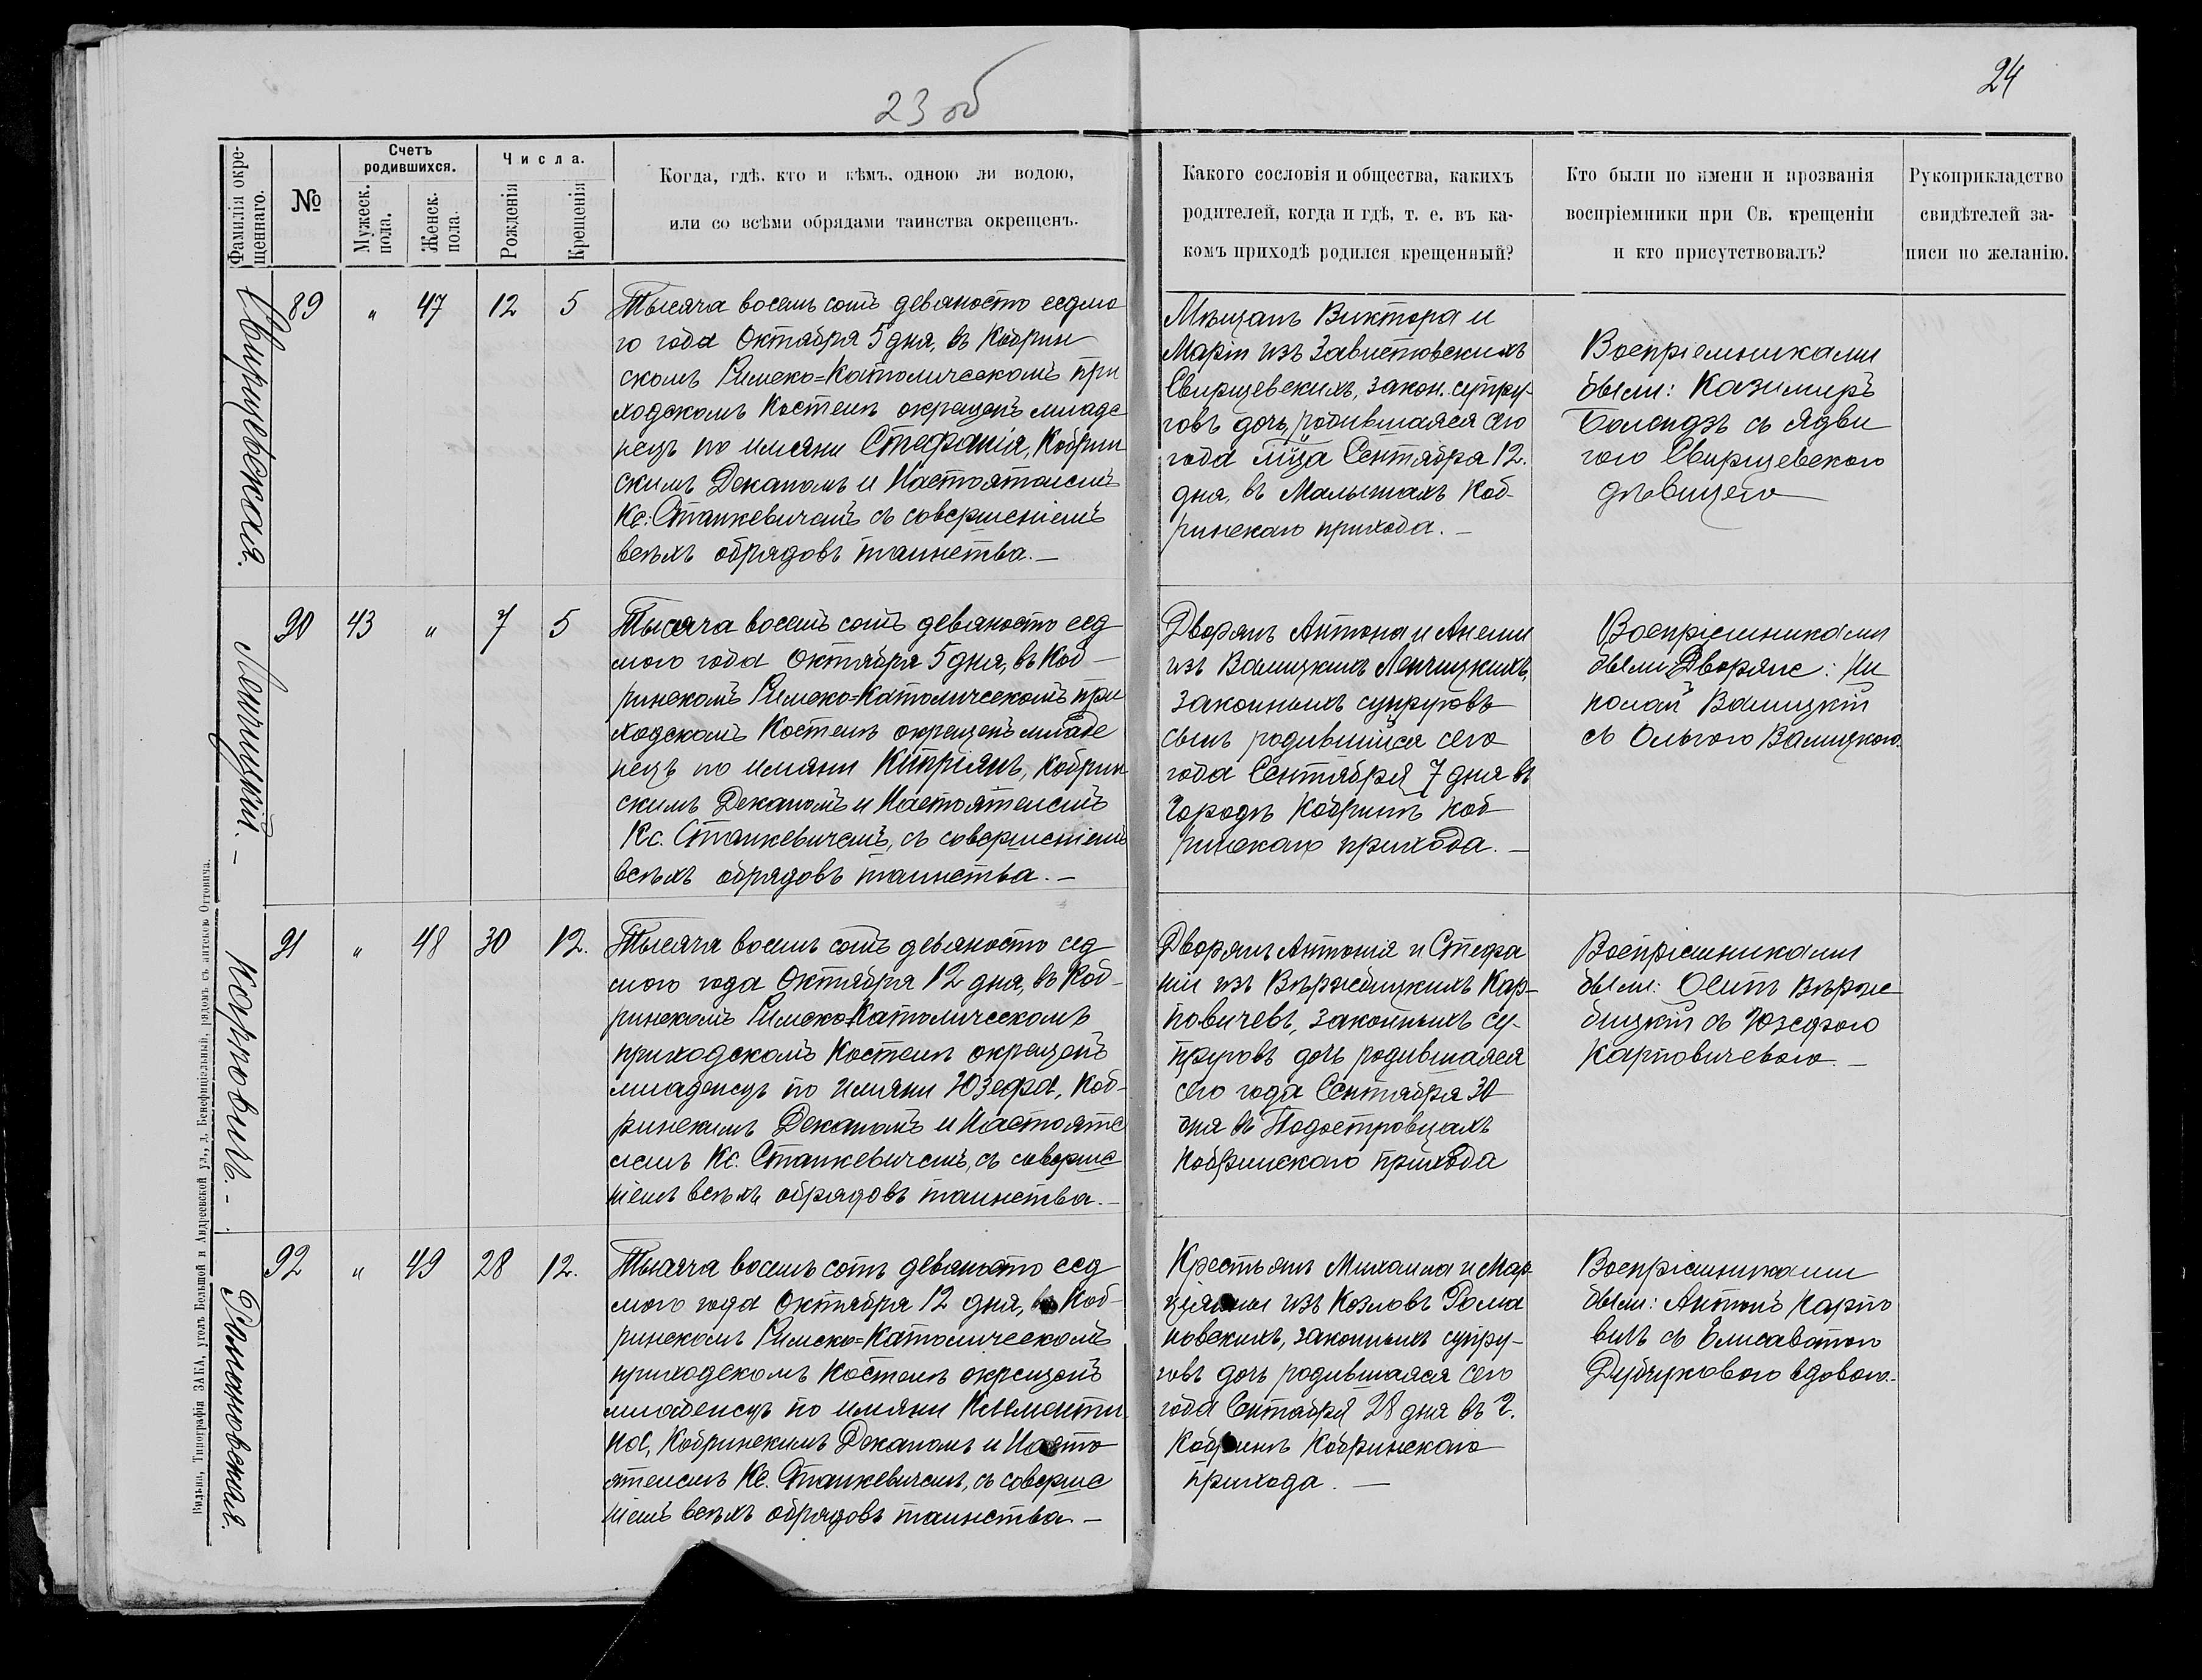 23 об
24
Фамилія окре-
щеннаго.
№
Счетъ
родившихся.
Мужеск.
пола.
Женск.
пола.
Числа.
Рожденія
Крещенія
Когда, гдѣ, кто и кѣмъ, одною ли водою,
или со всѣми обрядами таинства окрещенъ.
Какого сословія и общества, какихъ
родителей, когда и гдѣ, т. е. въ ка-
комъ приходѣ родился крещенный?
Кто были по имени и прозванія
воспріемники при Св. крещеніи
и кто присутствовалъ?
Рукоприкладство
свидѣтелей за-
писи по желанію.
Свирщевская.
89 " 47 12 5
Тысяча восемь сотъ девяносто седмо
го года Октября 5 дня, въ Кобрин
скомъ Римско=Католическомъ при
ходскомъ Костелѣ окрещенъ младе
нецъ по имяни Стефанія, Кобрин
скимъ Деканомъ и Настоятелемъ
Кс. Станкевичемъ съ совершеніемъ
всѣхъ обрядовъ таинства. —
Мѣщанъ Виктора и
Маріи изъ Завистовскихъ
Свирщевскихъ, закон. супру-
говъ дочь, родившаяся сего
года м-ца Сентября 12.
дня, въ Малышахъ Коб-
ринскаго прихода. —
Воспріемниками
были: Казимиръ
съ Ядви
гою Свирщевскою
дѣвицею
Ленчицкій. —
90 43 " 7 5
Тысяча восемь сотъ девяносто сед
мого года Октября 5 дня, въ Коб-
ринскомъ Римско=Католическомъ при
ходскомъ Костелѣ окрещенъ младе
нецъ по имяни Кипріянъ, Кобрин
скимъ Деканомъ и Настоятелемъ
Кс. Станкевичемъ, съ совершеніемъ
всѣхъ обрядовъ таинства. —
Дворянъ Антона и Анели
изъ Валицкихъ Ленчицкихъ,
законныхъ супруговъ
сынъ родившійся сего
года Сентября 7 дня въ
Городѣ Кобринѣ Коб
ринскаго прихода. —
Воспріемниками
были Дворяне: Ни
колай Валицкій
съ Ольгою Валицкою.
Карповичъ. —
91 " 48 30 12.
Тысяча восемь сотъ девяносто сед
мого года Октября 12 дня, въ Коб-
ринскомъ Римско=Католическомъ
приходскомъ Костелѣ окрещенъ
младенецъ по имяни Юзефа, Коб-
ринскимъ Деканомъ и Настояте
лемъ Кс. Станкевичемъ, съ соверше
ніемъ всѣхъ обрядовъ таинства. —
Дворянъ Антонія и Стефа
ніи изъ Вѣржбицкихъ Кар-
повичевъ, законныхъ су-
пруговъ дочь родившаяся
сего года Сентября 30
дня въ Подостровцахъ
Кобринскаго прихода
Воспріемниками
были: Осипъ Вѣрже
бицкій съ Юзефою
Карповичевою. —
Романовская.
92 " 49 28 12.
Тысяча восемь сотъ девяносто сед
мого года Октября 12 дня, въ Коб-
ринскомъ Римско=Католическомъ
приходскомъ Костелѣ окрещенъ
младенецъ по имяни Клементи
на, Кобринскимъ Деканомъ и Насто
ятелемъ Кс. Станкевичемъ, съ соверше
ніемъ всѣхъ обрядовъ таинства —
Крестьянъ Михаила и Мар
цянны изъ Козловъ Рома
новскихъ, законныхъ супру-
говъ дочь родившаяся сего
года Сентября 28 дня въ г.
Кобринѣ Кобринскаго
прихода. —
Воспріемниками
были: Антонъ Карпо
вичъ съ Елисаветою
вдовою.
Вильна, Типографія ЗАКА, уголъ Большой и Андреевской ул., д. Бенефиціальный, рядомъ съ аптекою Оттовича.